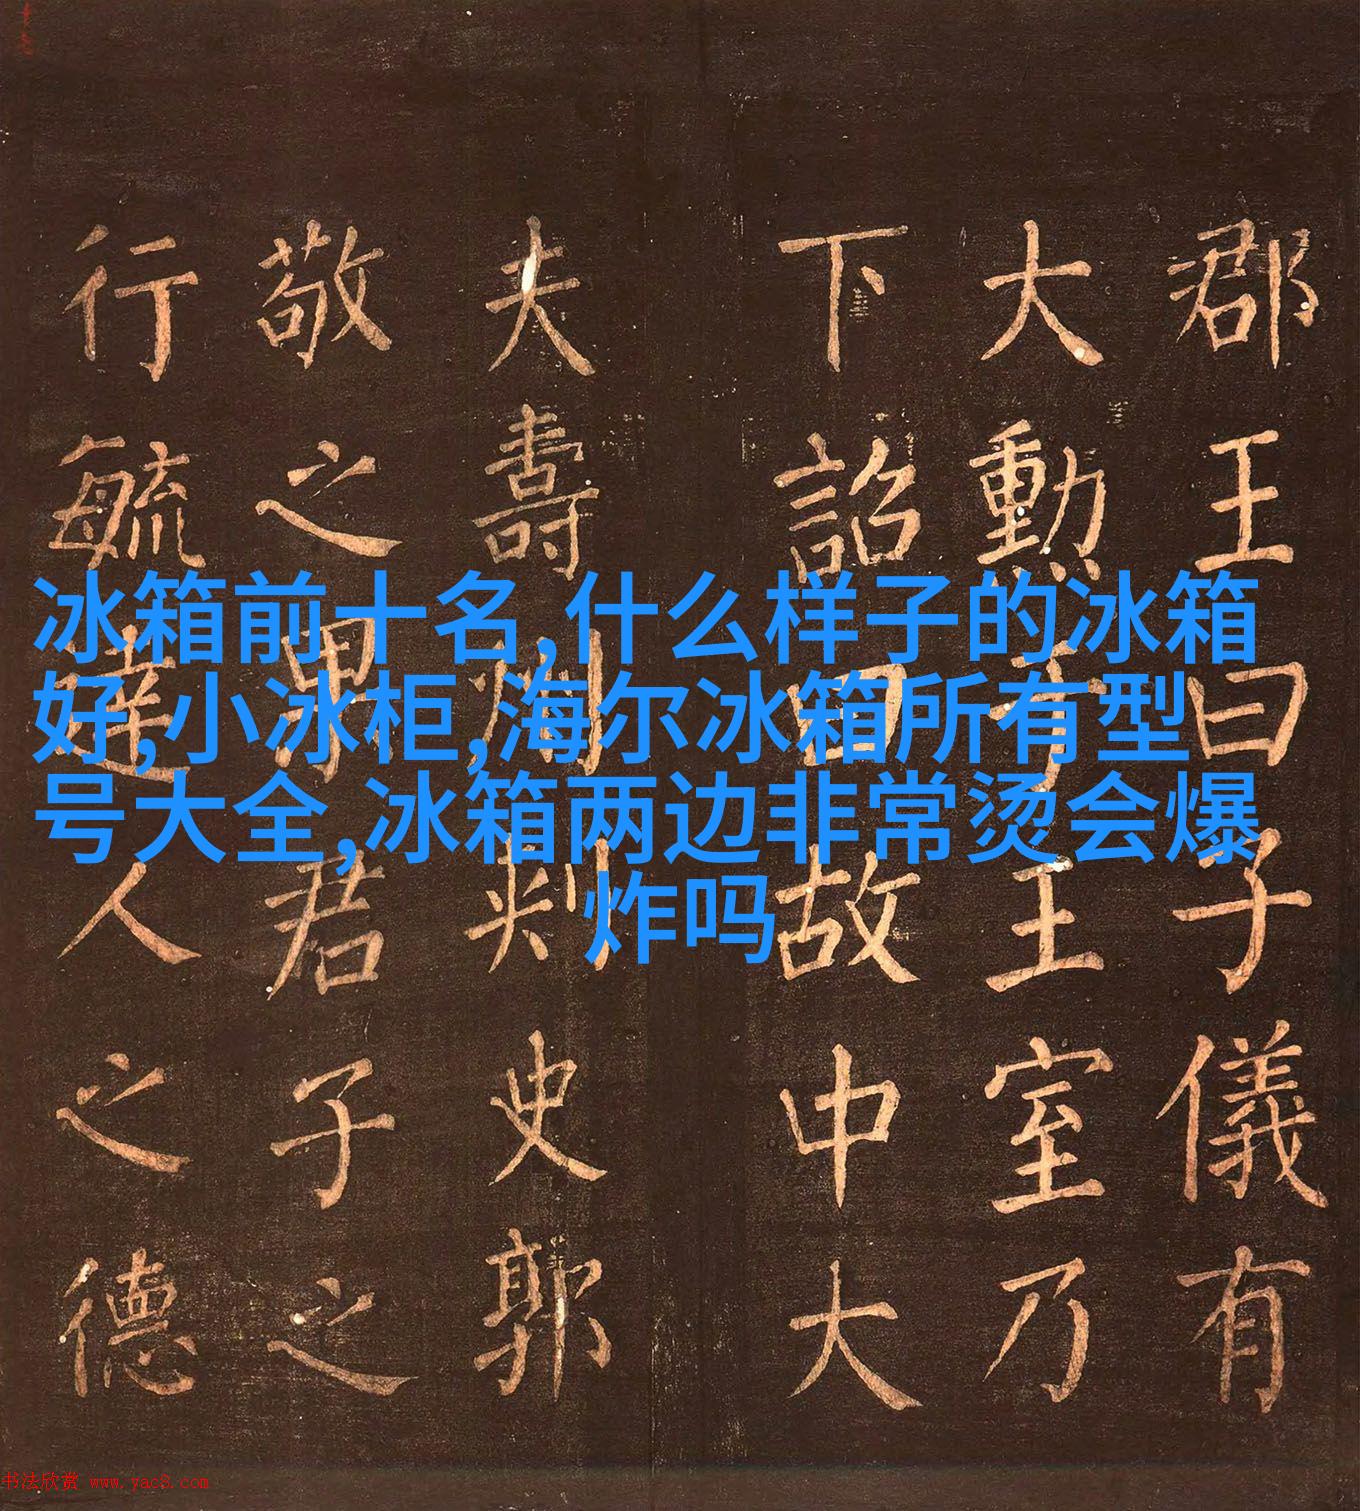 冰箱前十名,什么样子的冰箱
好,小冰柜,海尔冰箱所有型
号大全,冰箱两边非常烫会爆
炸吗
郡王曰子儀有
大勲于王室乃
下詔曰故中大
夫壽州刾史郭
敬之果君子之
行毓達人之德
书法欣赏 www.yac8.com